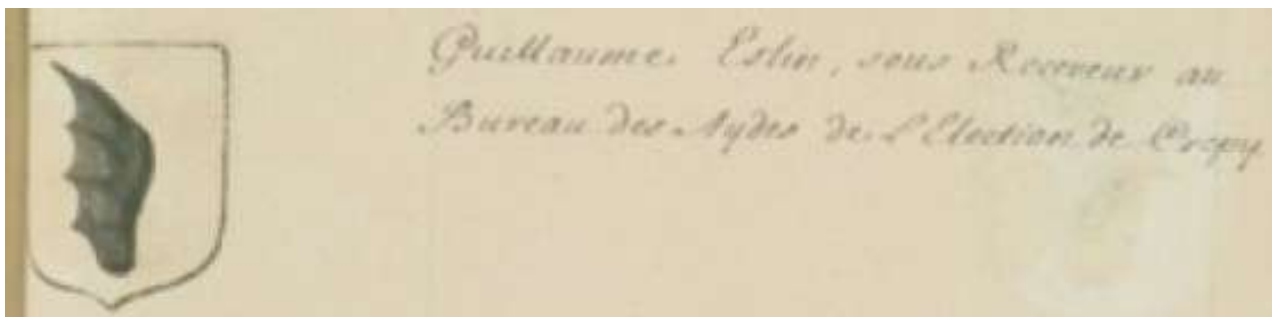 Guillaume Eslin, sous Receveur au
Bureau des Aydes de L'Election de Crepy